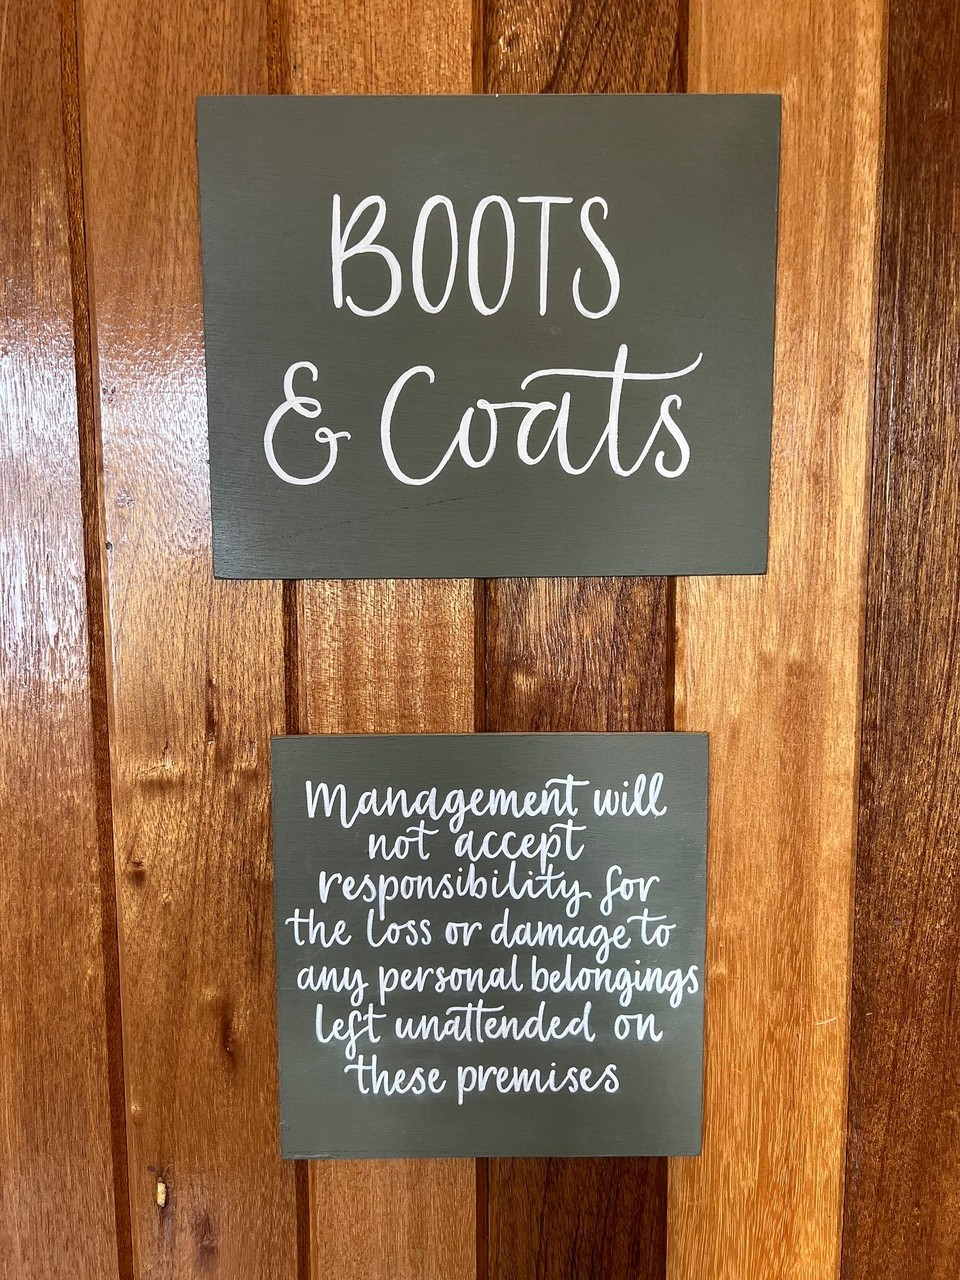 BOOTS
& Coats
Management will
not accept
responsibility for
the loss or damage to
any personal belongings
left unattended on
these premises